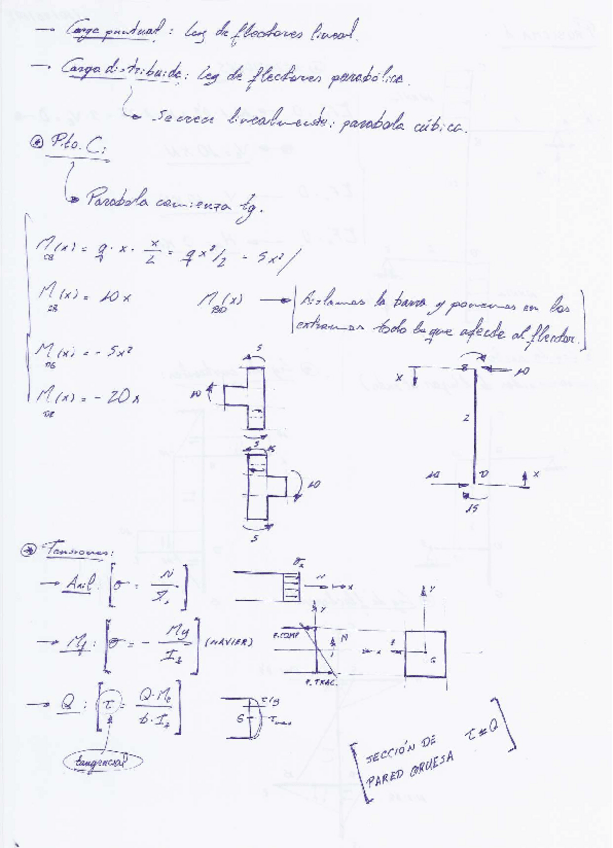 → Carga puntual: Ley de flectores lineal.
→ Carga distribuida: Ley de flectores parabólica.
Se crean linealmente: parábola cúbica.
* Pto. C:
Parábola comienza tg.
M(x) = q · x · x/2 = q x²/2 = 5x²
CB
M(x) = 10x
M(x) → [Aislamos la barra y ponemos en los
BD
extremos todo lo que afecte al flector.]
M(x) = - 5x²
M(x) = - 20x
5
10
5
B
10
x
2
5
10
5
10
D
x
15
* Tensiones:
→ Axil: [σ = N/
σx
N
x
y
→ Mf: [σ = - My/Iz] (NAVIER)
F. COMP
F. TRAC.
M
y
G
→ Q: [τ = Q·Me/b·Iz]
G
τmax
tangencial
[SECCIÓN DE τ Q
PARED GRUESA]